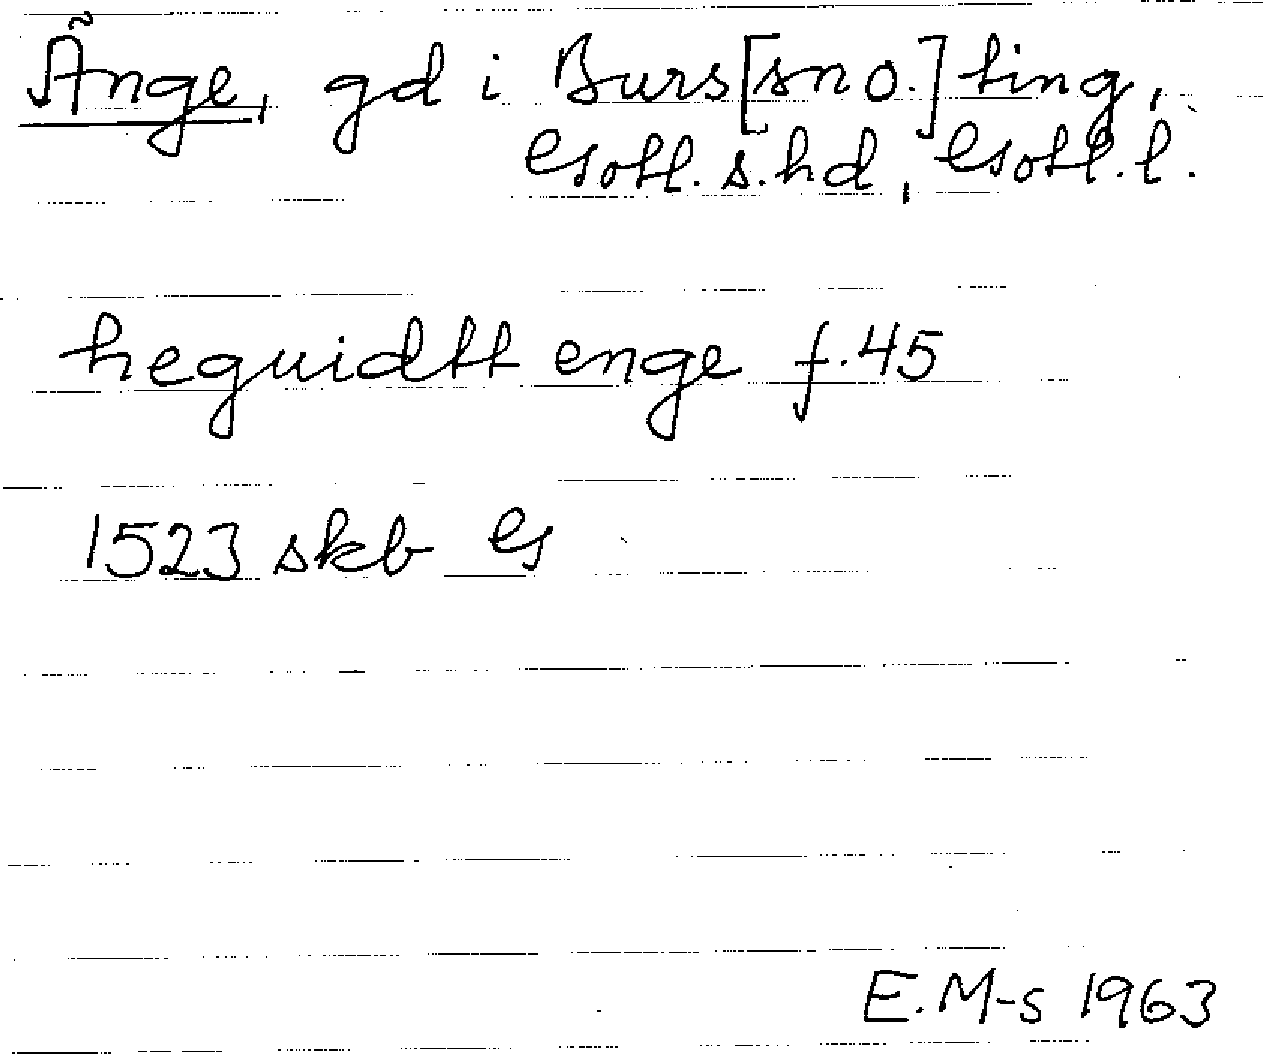 Änge, gd i Burs [sn o.] ting,
Gotl. s. hd, Gotl. l.
heguidtt enge f. 45
1523 skb G
E. M-s 1963